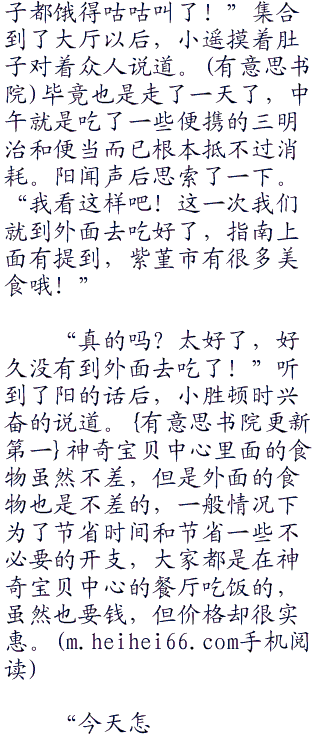 子都饿得咕咕叫了！”集合
到了大厅以后，小遥摸着肚
子对着众人说道。(有意思书
院)毕竟也是走了一天了，中
午就是吃了一些便携的三明
治和便当而已根本抵不过消
耗。阳闻声后思索了一下。
“我看这样吧！这一次我们
就到外面去吃好了，指南上
面有提到，紫堇市有很多美
食哦！”
“真的吗？太好了，好
久没有到外面去吃了！”听
到了阳的话后，小胜顿时兴
奋的说道。{有意思书院更新
第一}神奇宝贝中心里面的食
物虽然不差，但是外面的食
物也是不差的，一般情况下
为了节省时间和节省一些不
必要的开支，大家都是在神
奇宝贝中心的餐厅吃饭的，
虽然也要钱，但价格却很实
惠。(m.heihei66.com手机阅
读)
“今天怎